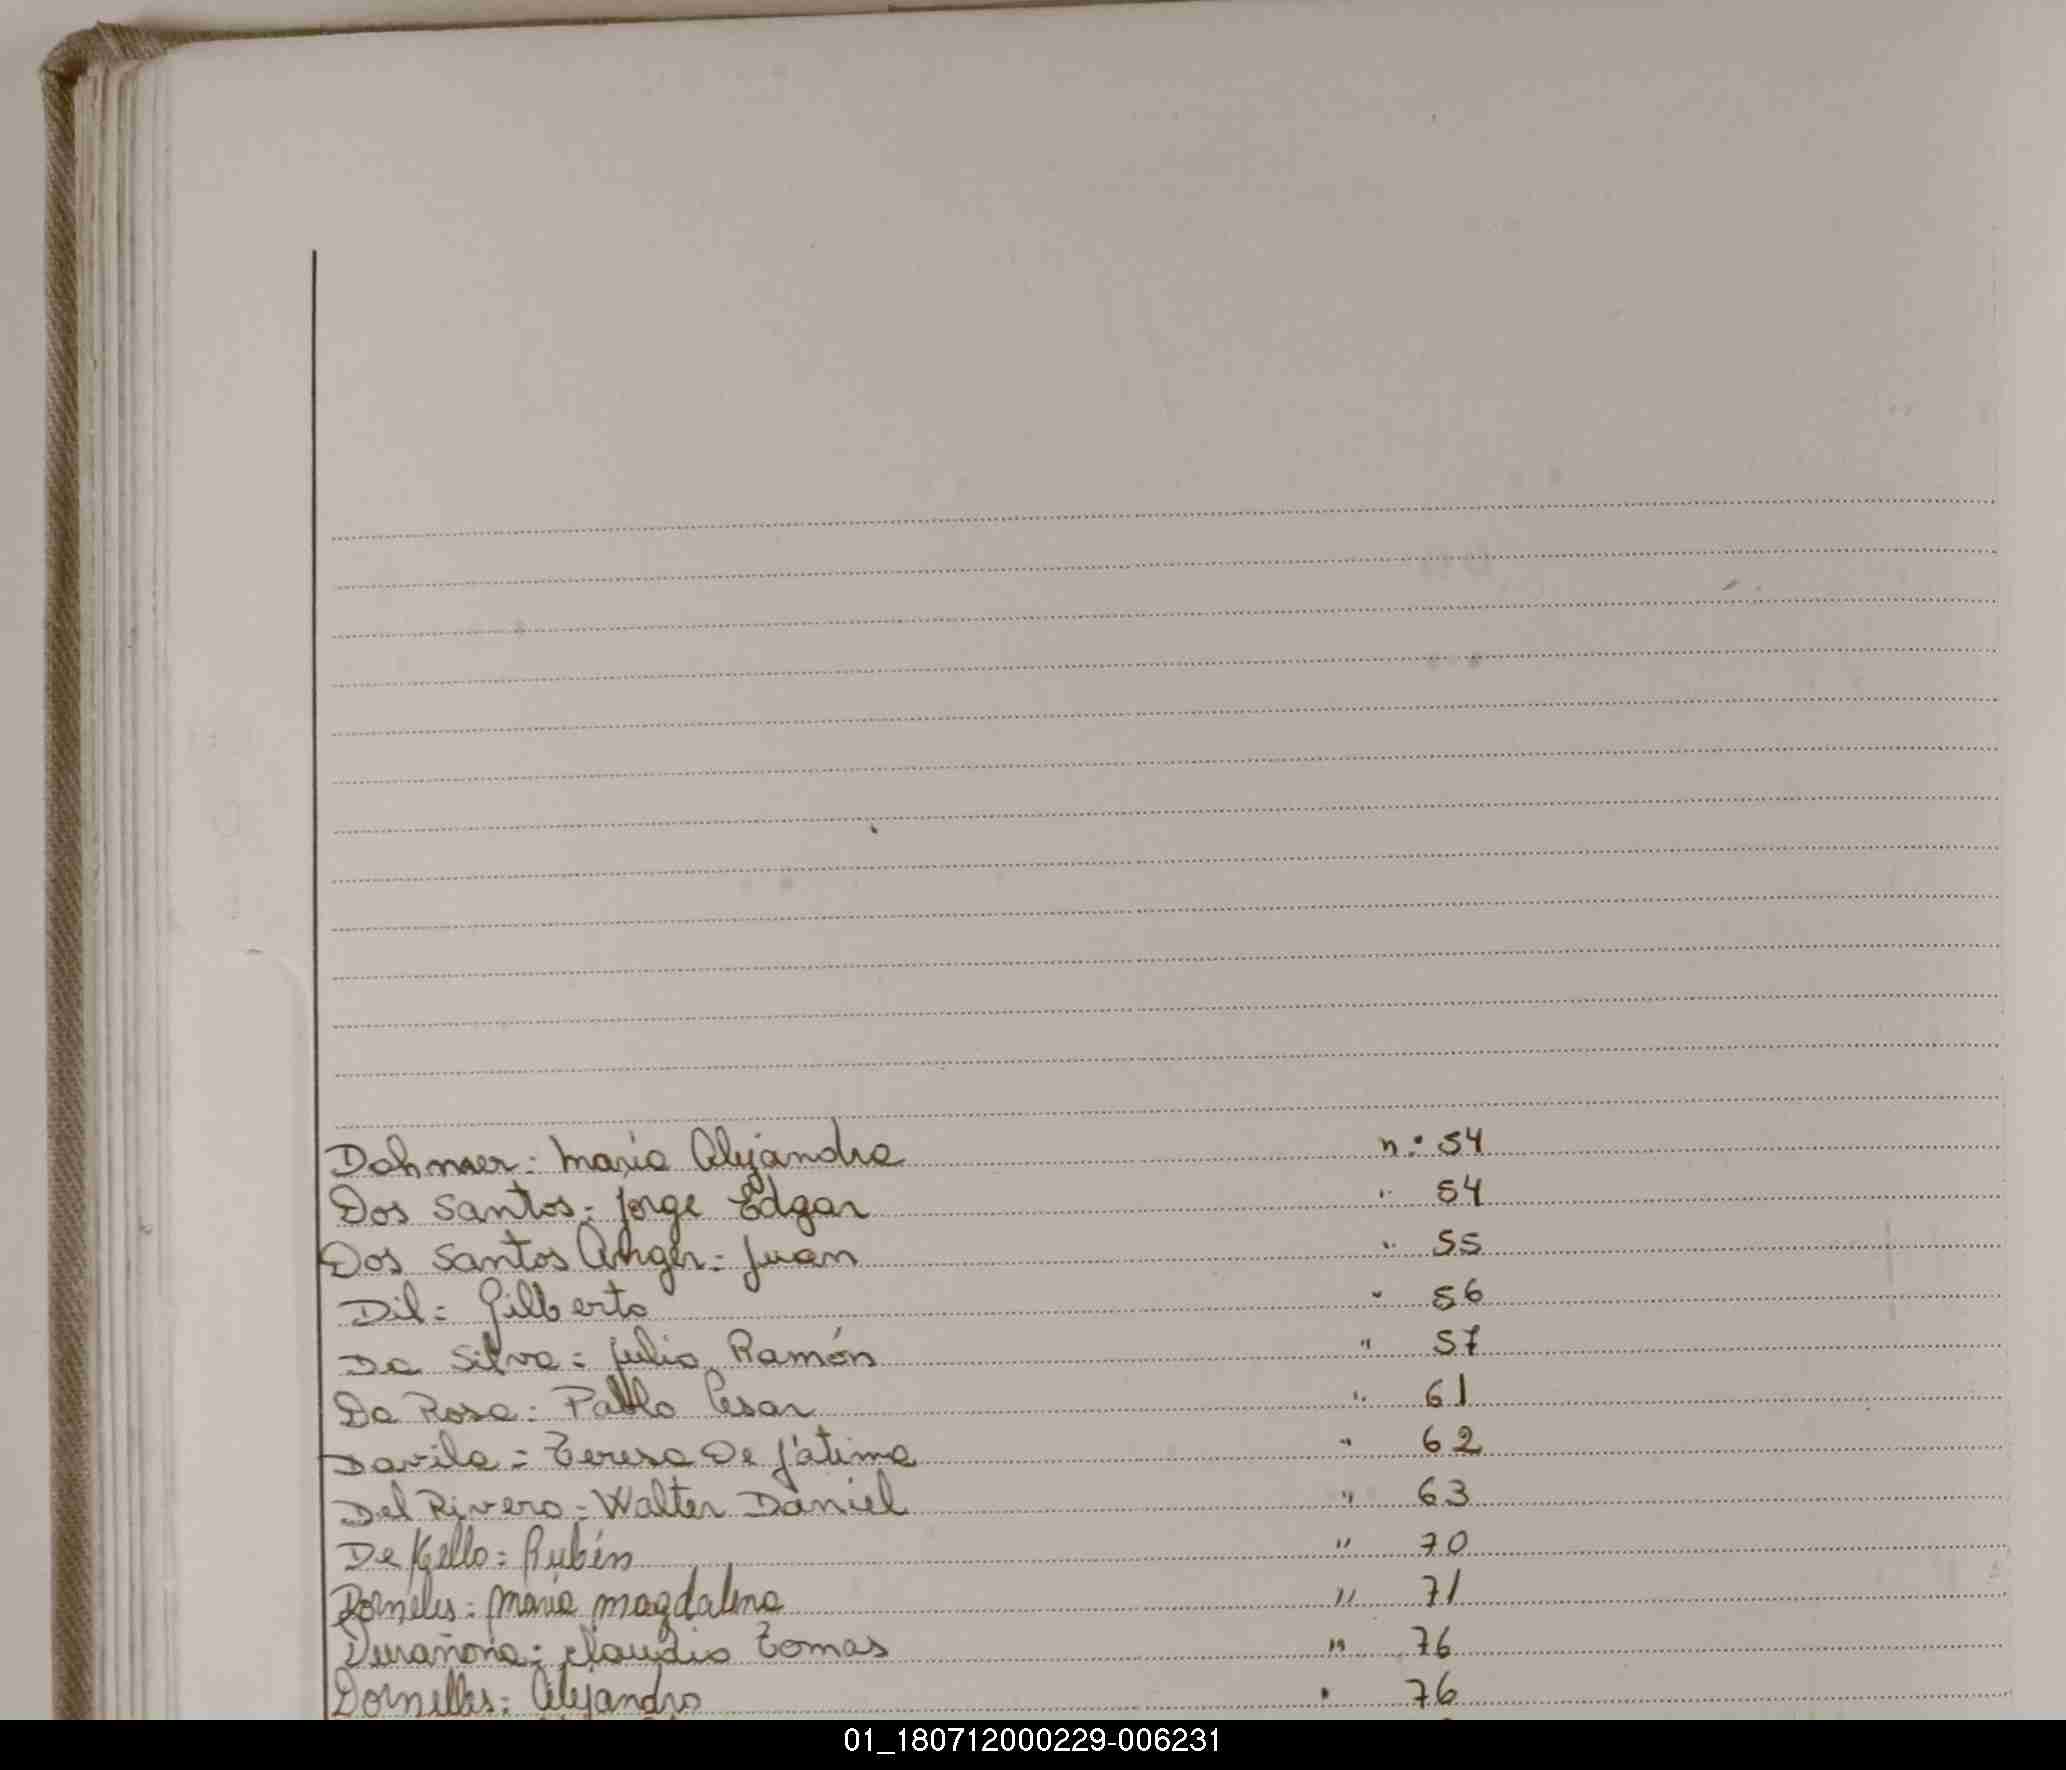 Dahmer: María Alejandra n: 54
Dos Santos: Jorge Edgar " 54
Dos Santos Anger: Juan " 55
Dil: Gilberto " 56
Da Silva: Julio Ramón " 57
Da Rosa: Pablo Cesar " 61
Davila: Teresa De Fátima " 62
Del Rivero: Walter Daniel " 63
De Mello: Rubén " 70
Dorneles: María Magdalena " 71
Durañona: Claudio Tomas " 76
Dornelles: Alejandro " 76
01_180712000229-006231